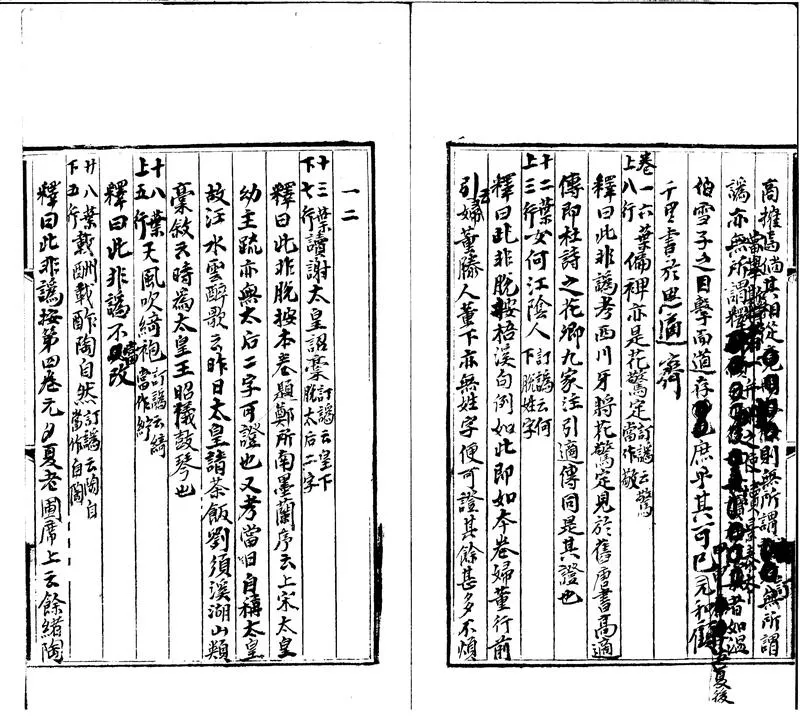 高推馬
則無所謂
無所謂
譌亦無所謂釋
者如溫
伯雪子之目擊而道存
庶乎其可已元和顧
千里書於思適齋
卷一六葉偏裨亦是花驚定訂譌云驚
上八行當作敬
釋曰此非譌考西川牙將花驚定見於舊唐書高適
傳即杜詩之花卿九家注引適傳同是其證也
十二葉女何江陰人訂譌云何
上三行下脫姓字
釋曰此非脫按梧溪句例如此即如本卷婦董行前
引云婦董勝人董下亦無姓字便可證其餘甚多不煩
一二
十三葉讀謝太皇詔稾訂譌云皇下
下七行脫太后二字
釋曰此非脫按本卷題鄭所南墨蘭序云上宋太皇
幼主疏亦無太后二字可證也又考當日自稱太皇
故汪水雲醉歌云昨日太皇請茶飯劉須溪湖山類
稾敘云時為太皇王昭儀鼓琴也
十八葉天風吹綺袍訂譌云綺
上五行當作紵
釋曰此非譌不當改
廿八葉載酬載酢陶自然訂譌云陶自
下五行當作自陶
釋曰此非譌按第四卷元夕夏老圃席上云餘緒陶